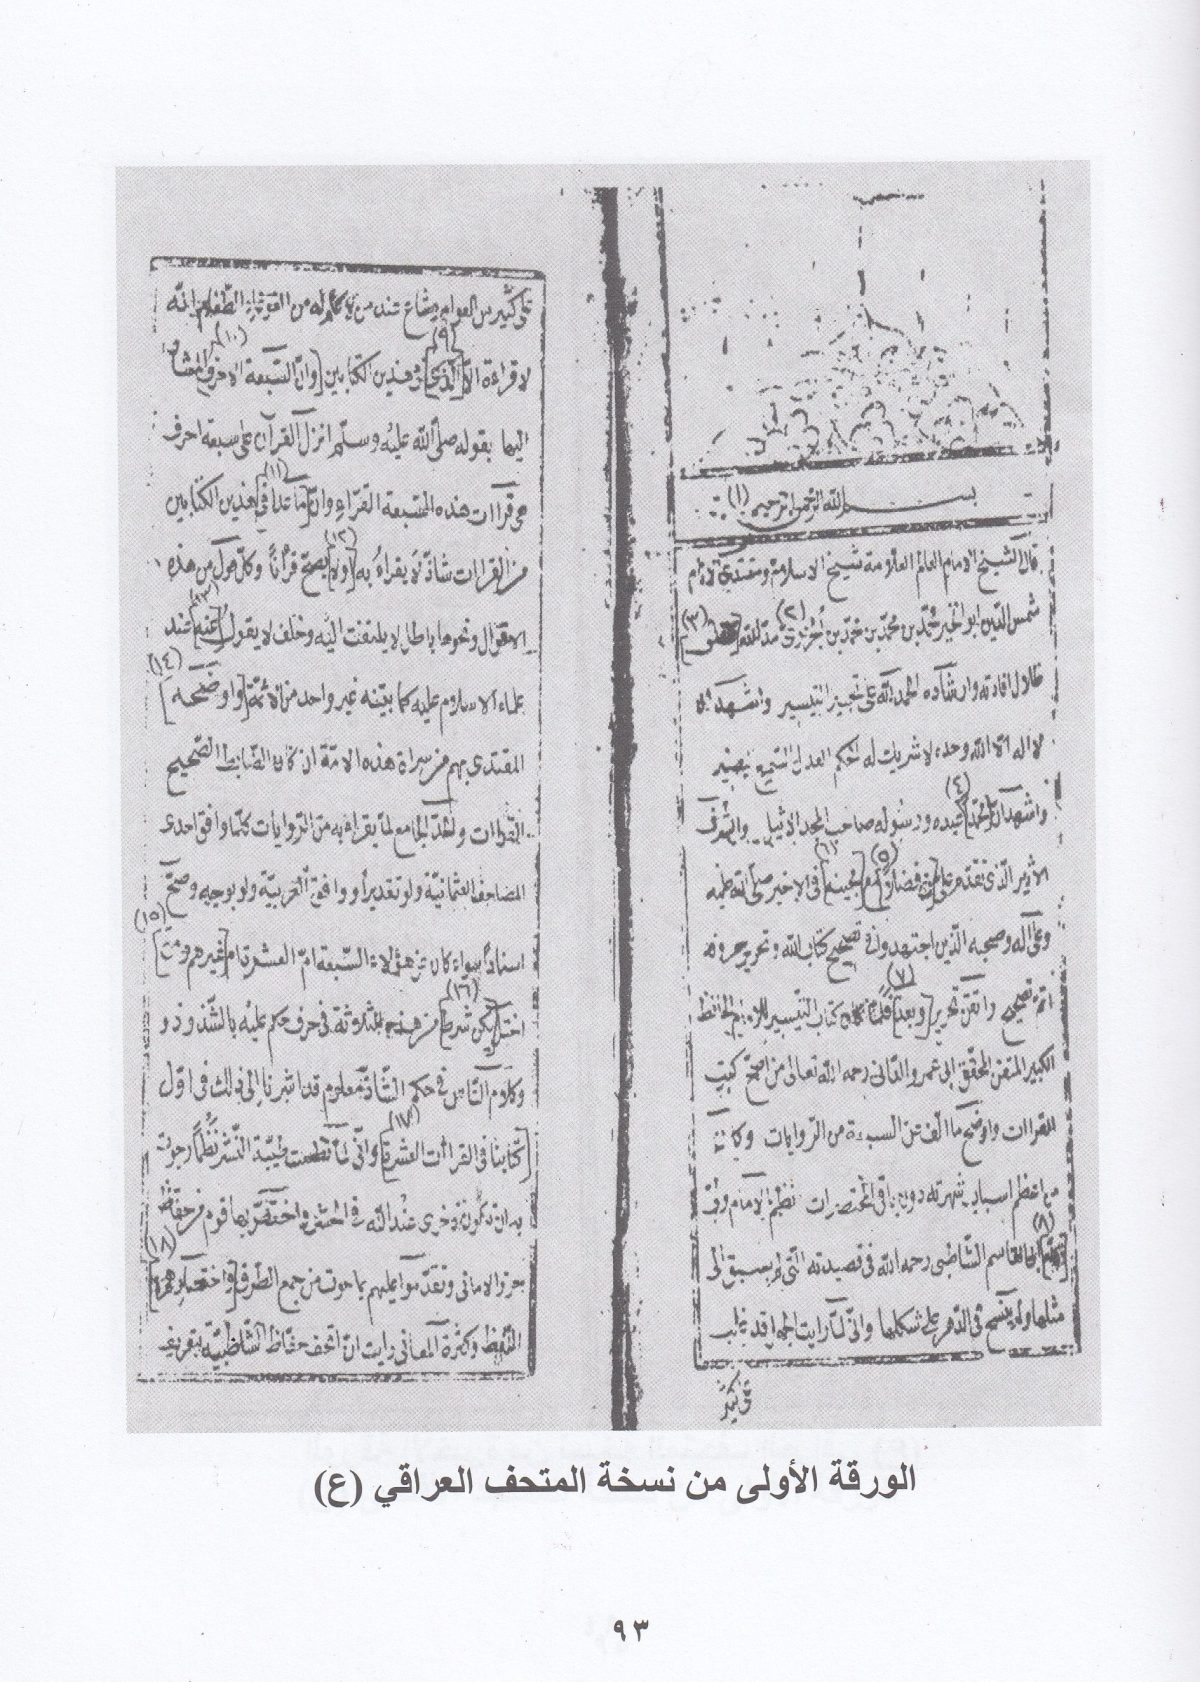 بسم الله الرحمن الرحيم (١)
قال الشيخ الامام العالم العلامة شيخ الاسلام ومقتدى الانام
شمس الدين ابو الخير محمد بن محمد بن محمد بن الجزري (٢) مد الله [ (٣)
ظلال افادته وارشاده الحمد لله على تحبير التيسير واشهد ان
لا اله الا الله وحده لا شريك له الحكم العدل السميع البصير
واشهد ان [محمدا] (٤) عبده ورسوله صاحب المجد الاثيل والشرف
الاثير الذي تقدم على فضلا (٥) [بمجيئه] (٦) في الاخير صلى الله عليه
وعلى آله وصحبه الذين اجتهدوا في تصحيح كتاب الله وتحرير حروفه
اتم تصحيح واتقن تحرير [وبعد] (٧) فلما كان كتاب التيسير للامام الحافظ
الكبير المتقن المحقق ابي عمرو الداني رحمه الله تعالى من اصح كتب
القراات واوضح ما الف عن السبعة من الروايات وكان
من اعظم اسباب شهرته دون باقي المختصرات نظم الامام ولي
[الله] (٨) ابي القاسم الشاطبي رحمه الله في قصيدته التي لم يسبق الى
مثلها ولم ينسج في الدهر على شكلها واني لما رايت الجهل قد غلب
على كثير
على كثير من العوام وشاع عند من لا علم له من الطغام انه
لا قراءة الا [الذي] (٩) في هذين الكتابين [وان السبعة الاحرف المشار (١٠)
اليها بقوله صلى الله عليه وسلم انزل القرآن على سبعة احرف
هي قراات هذه السبعة القراء وان [ما عدا في] (١١) هذين الكتابين
من القراات شاذ لا يقراء به [ولا] (١٢) يصح قرآنا وكل قول من هذه
الاقوال ونحوها باطل لا يلتفت اليه وخلف لا يقول [عنه] (١٣) عند
علماء الاسلام عليه كما بينه غير واحد من الائمة [واوضحه] (١٤)
المقتدى بهم من سراة هذه الامة ان كان الضابط الصحيح
القراات والحد الجامع لما يقراء به من الروايات كلما وافق احدى
المصاحف العثمانية ولو تقديرا ووافق العربية ولو بوجه وصح
اسنادا سواء كان عن هؤلاء السبعة ام العشرة ام [غيرهم ومتى] (١٥)
اختل [ شرط] (١٦) من هذه الثلاثة في حرف حكم عليه بالشذوذ و
وكلام الناس في حكم الشاذ معلوم قد اشرنا الى ذلك في اول
[كتابنا في القراات العشرة] (١٧) واني لما نظمت طيبة النشر نظما رجوت
به ان تكون ذخرى عند الله في الحشر واختص بها قوم من حفظ
حرز الاماني وتقدموا عليهم بما حوت من جمع الطرق [ (١٨)
اللفظ وكثرة المعاني رايت ان اتحف حفاظ الشاطبية بتعريف
الورقة الأولى من نسخة المتحف العراقي (ع)
٩٣